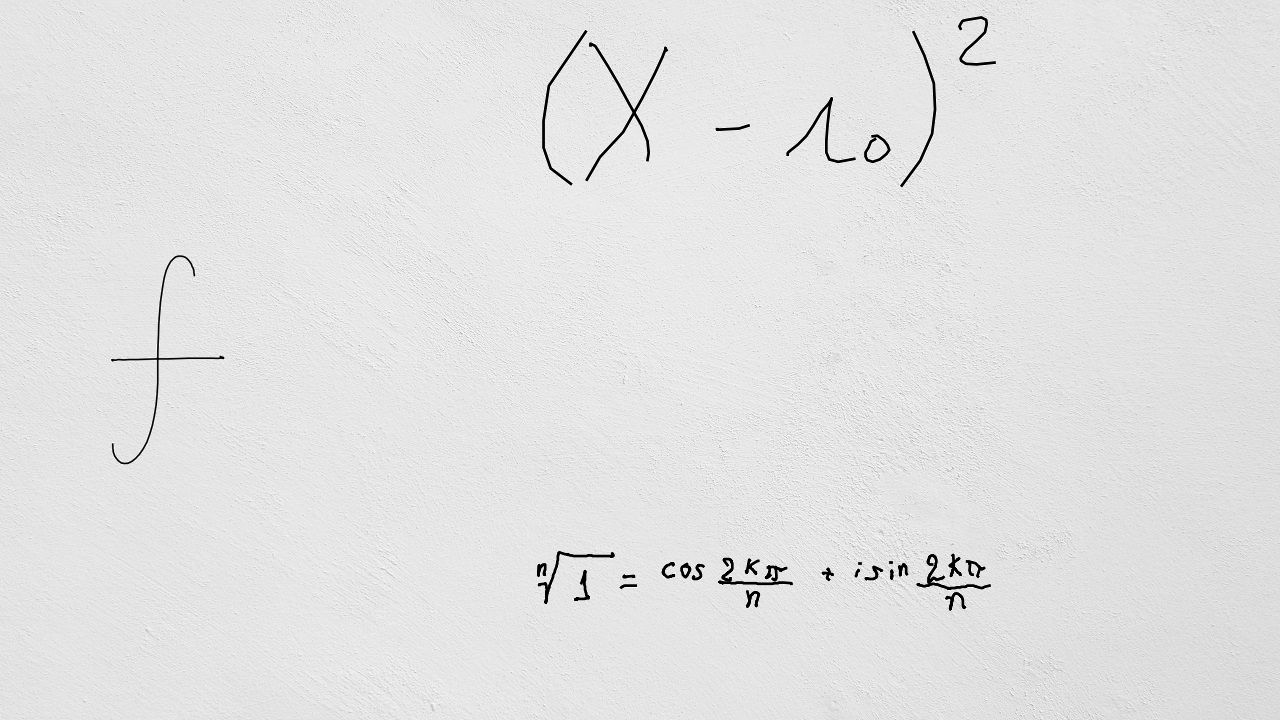 (X - 10)²
f
ⁿ√1 = cos 2kπ/n + i sin 2kπ/n